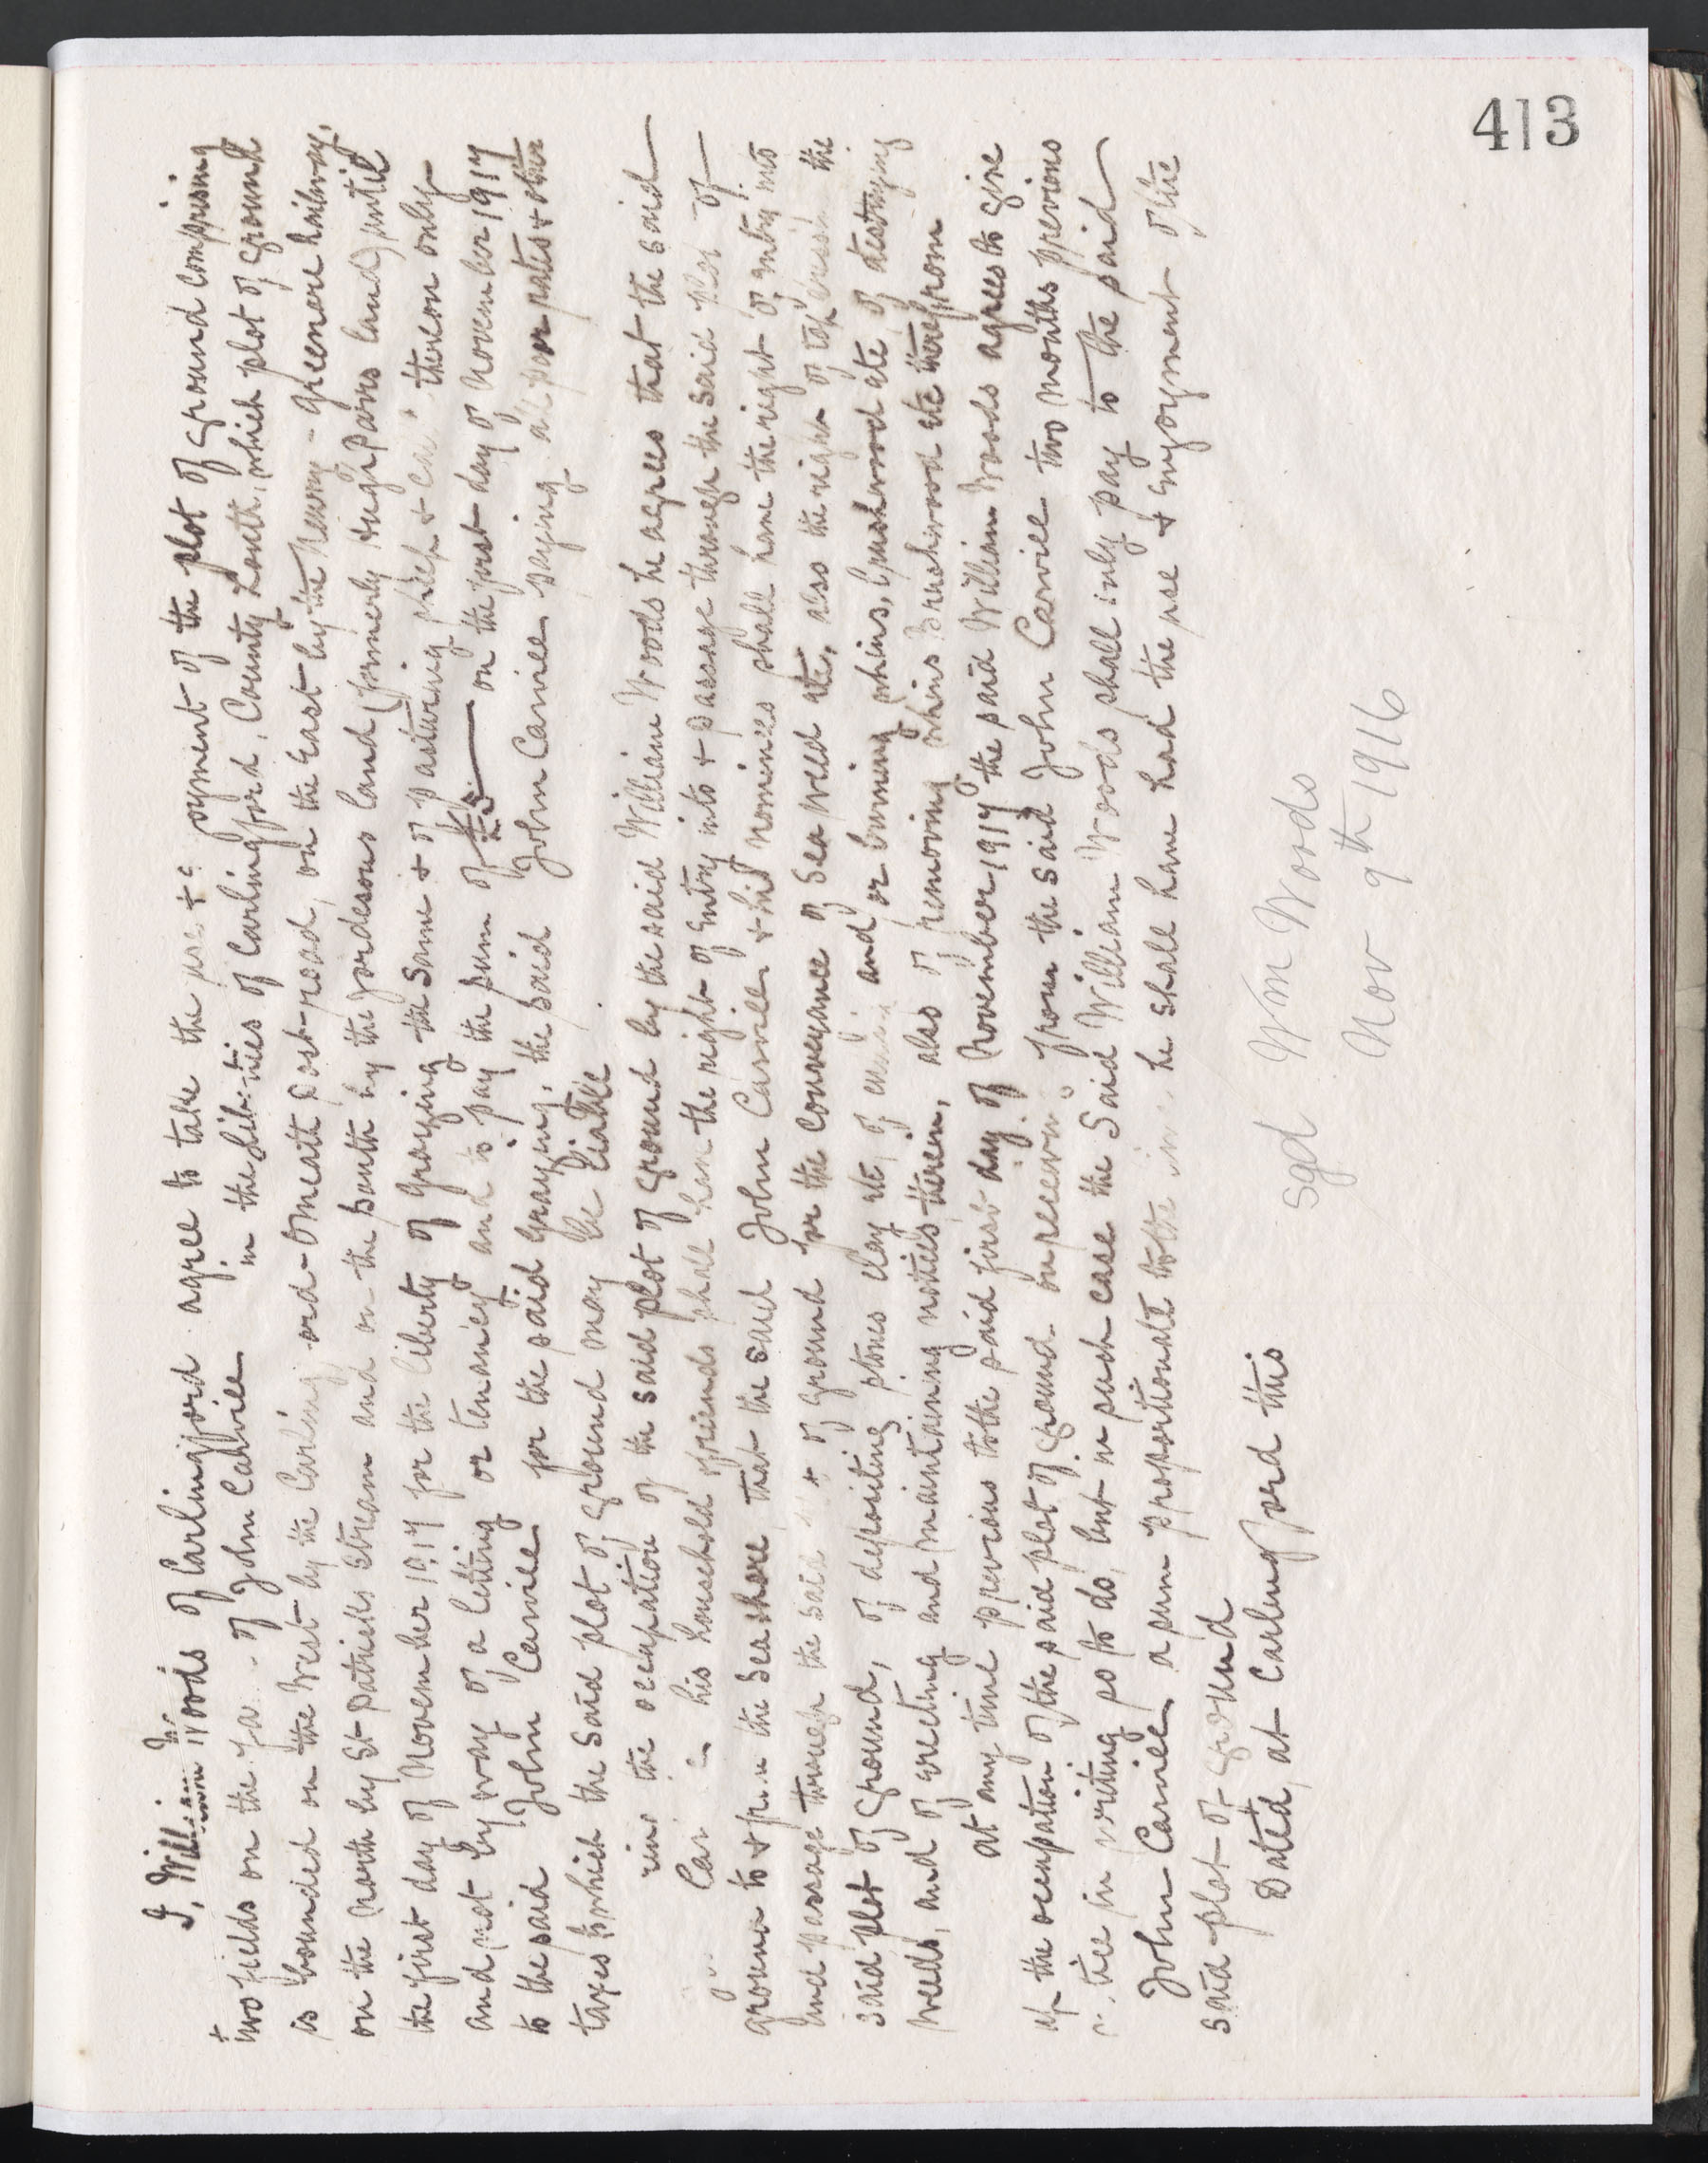 413
I, William Jr Woods of Carlingford agree to take the use & oyment of the plot of ground comprising
two fields on the fa of John Carvill in the Liberties of Carlingford, County Louth, which plot of ground
is bounded on the West by the Carlingford-Omeath post-road, on the East by the Newry-Greenore Railway,
on the North by St Patricks Stream and on the South by the Jordesons land (formerly Hugh Parrs land) until
the first day of November 1917 for the liberty of grazing the same & of pasturing sheep & thereon only
and not by way of a letting or tenancy and to pay the sum of £ on the first day of November 1917
to the said John Carvill for the said grazing, the said John Carvill paying all poor rates & other
taxes to which the said plot of ground may be liable.
ring the occupation of the said plot of ground by the said William Woods he agrees that the said
Car his household friends shall have the right of entry into & passage through the said plot of
ground to & from the Sea shore that the said John Carvill & his nominees shall have the right of entry into
and passage through the said of ground for the conveyance of Sea weed etc, also the right of the
said plot of ground, of depositing stones clay etc, of and or burning whins, brushwood etc of destroying
weeds, and of erecting and maintaining notices therein, also of removing whins Brushwood etc therefrom
at any time previous to the said first day of November 1917 the said William Woods agrees to give
up the occupation of the said plot of ground on receiving from the said John Carvill two months previous
notice in writing so to do, but in such case the said William Woods shall only pay to the said
John Carvill a sum proportionate to the he shall have had the use & enjoyment of the
said plot of ground
Dated at Carlingford this
sgd Wm Woods
Nov 9th 1916